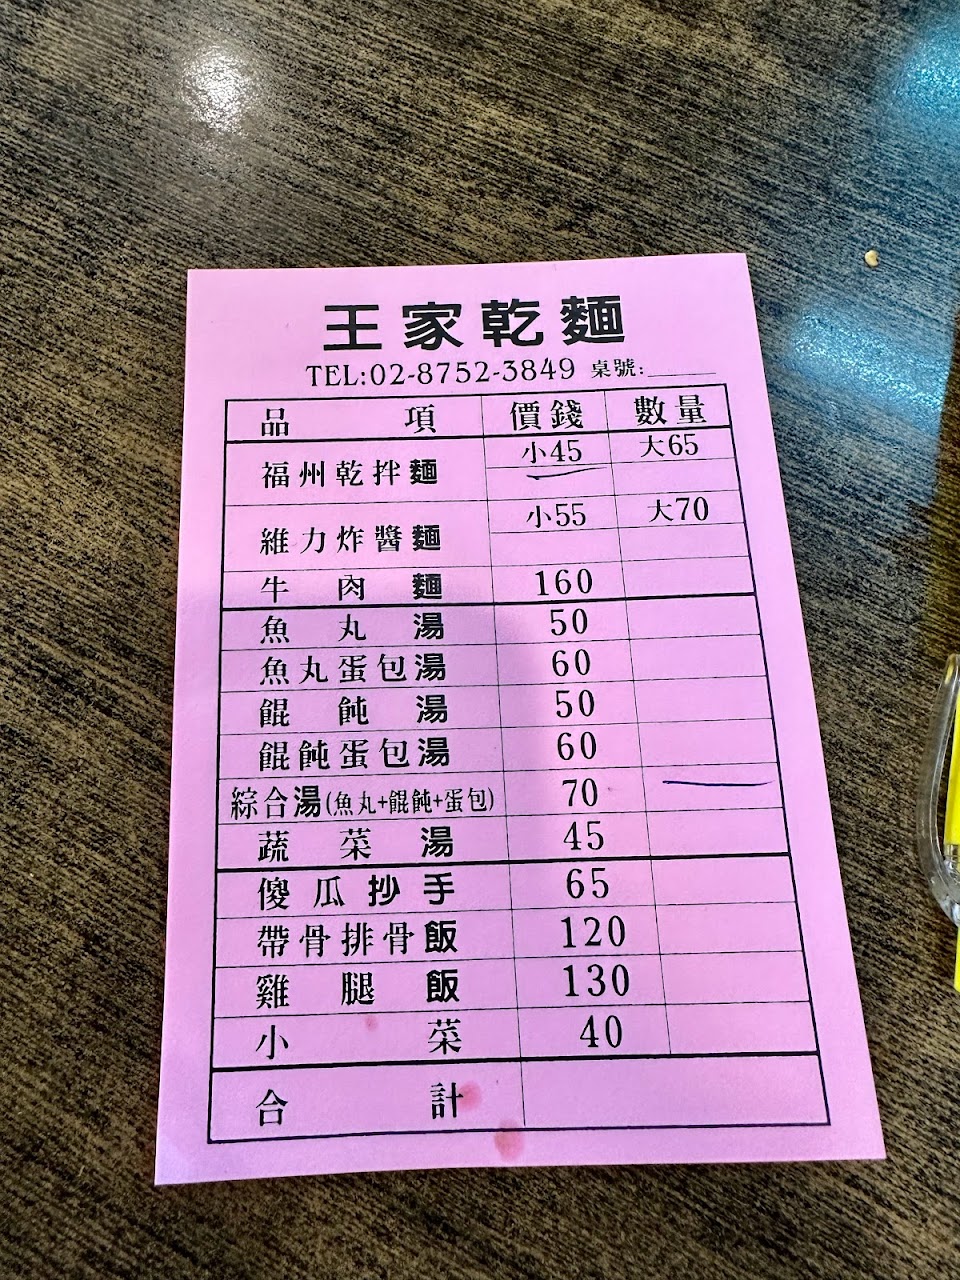 王家乾麵
TEL:02-8752-3849 桌號:
品項 價錢 數量
福州乾拌麵 小45 大65
維力炸醬麵 小55 大70
牛肉麵 160
魚丸湯 50
魚丸蛋包湯 60
餛飩湯 50
餛飩蛋包湯 60
綜合湯(魚丸+餛飩+蛋包) 70
蔬菜湯 45
傻瓜抄手 65
帶骨排骨飯 120
雞腿飯 130
小菜 40
合計